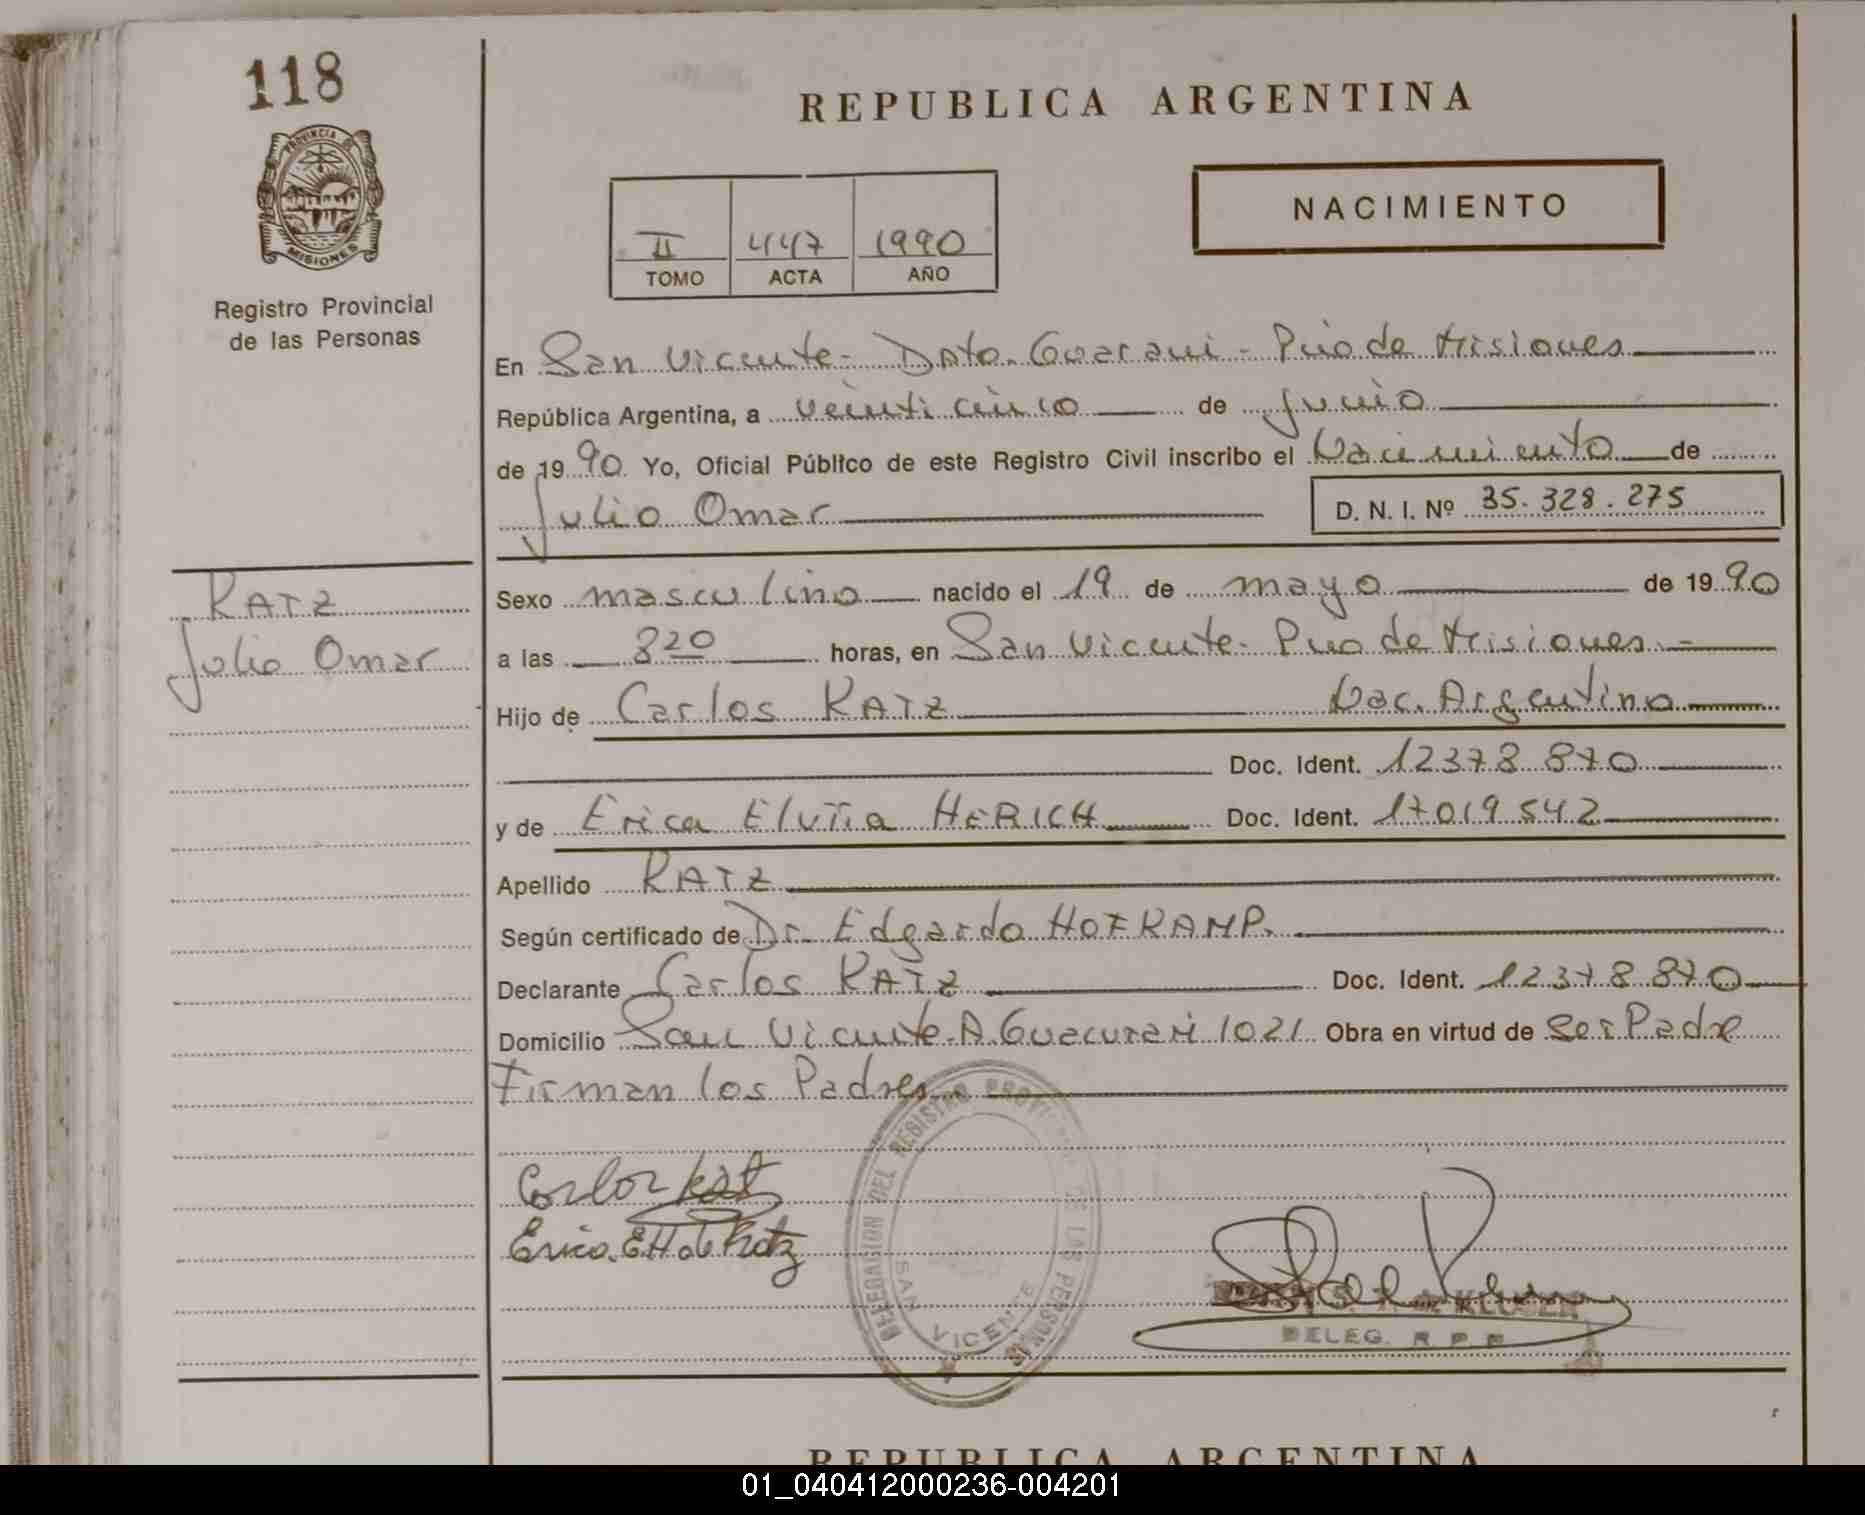 118
REPUBLICA ARGENTINA
PROVINCIA
MISIONES
Registro Provincial
de las Personas
NACIMIENTO
II 447 1990
TOMO ACTA AÑO
En San Vicente - Dpto. Guarani - Pcia de Misiones
República Argentina, a veinticinco de junio
de 1990 Yo, Oficial Público de este Registro Civil inscribo el Nacimiento de
Julio Omar
D. N. I. Nº 35.328.275
KATZ
Julio Omar
Sexo masculino nacido el 19 de mayo de 1990
a las 8 20 horas, en San Vicente - Pcia de Misiones.-
Hijo de Carlos KATZ Nac. Argentino
Doc. Ident. 12378870
y de Erica Elvira HERICH Doc. Ident. 17019542
Apellido KATZ
Según certificado de Dr. Edgardo HOFKAMP.
Declarante Carlos KATZ Doc. Ident. 12378870
Domicilio San Vicente - A. Guacurari 1021 Obra en virtud de Ser Padre
Firman los Padres
Carlos Katz
Erica E H de Katz
DELEGACION DEL REGISTRO PROVINCIAL DE LAS PERSONAS
SAN VICENTE
DELEG. R. P. P.
REPUBLICA ARGENTINA
01_040412000236-004201